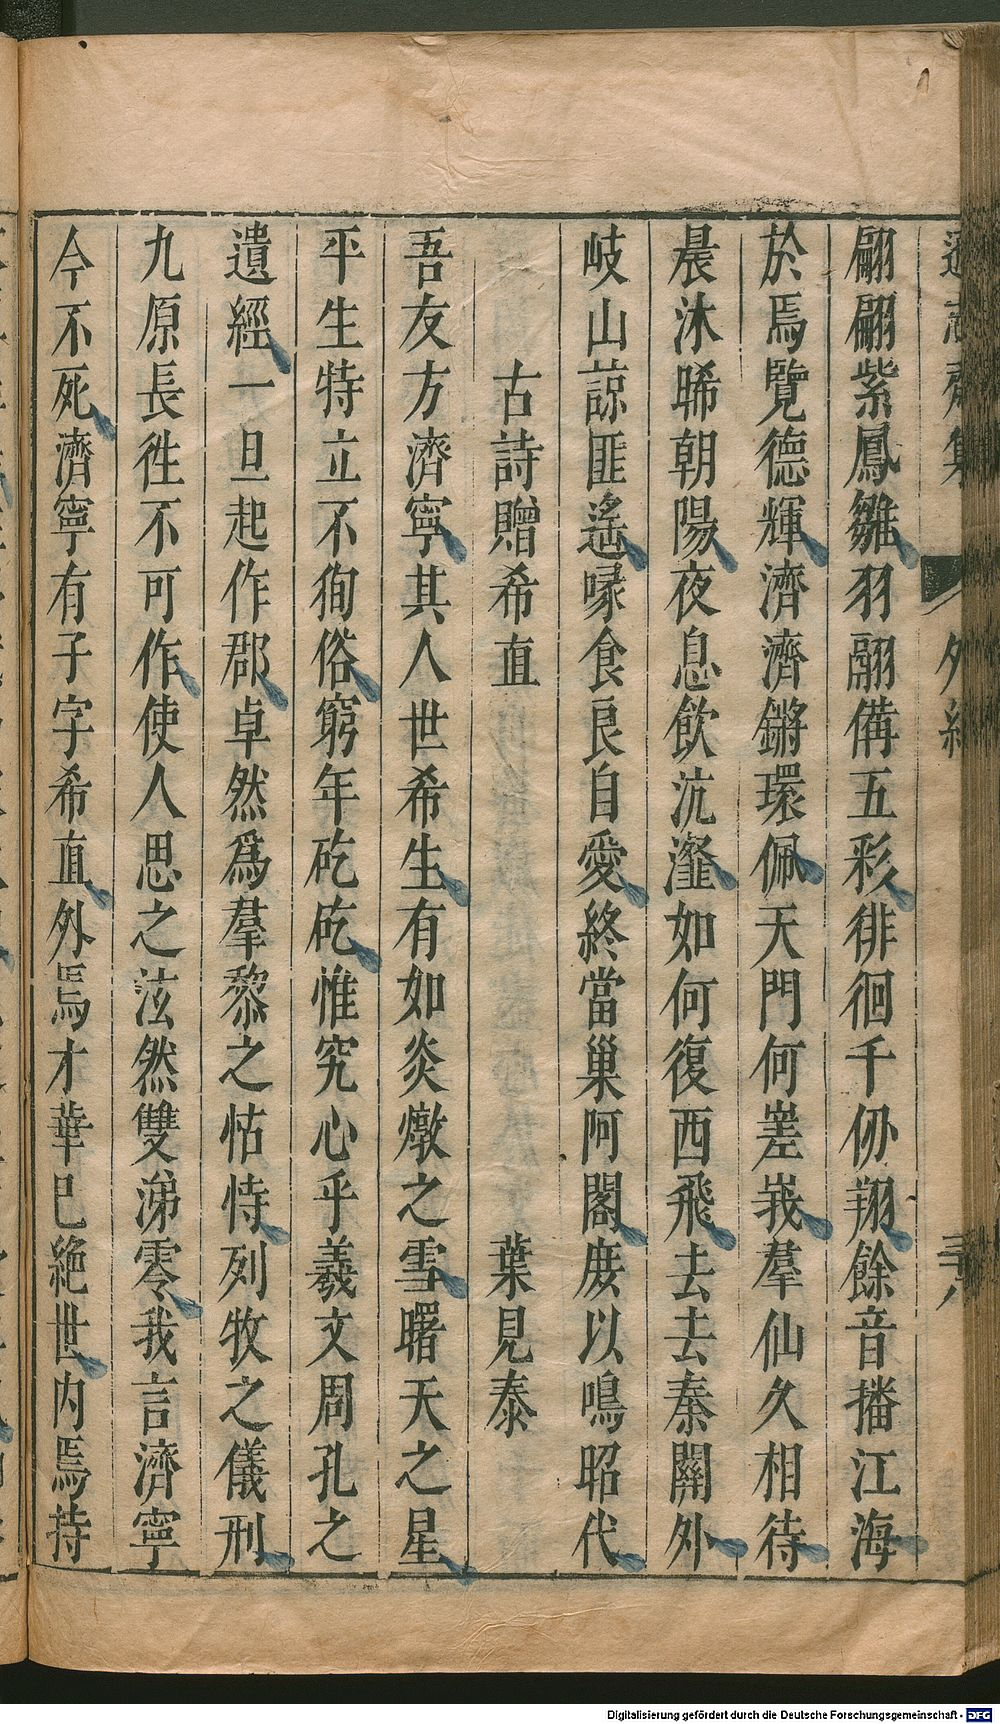 遜志齋集 外紀 三十八
翩翩紫鳳雛羽翮備五彩徘徊千仞翔餘音播江海
於焉覽德輝濟濟鏘環佩天門何嵳峩羣仙久相待
晨沐晞朝陽夜息飲沆瀣如何復西飛去去秦關外
岐山諒匪遙啄食良自愛終當巢阿閣庶以鳴昭代
古詩贈希直 葉見泰
吾友方濟寧其人世希生有如炎燉之雪曙天之星
平生特立不徇俗窮年矻矻惟究心乎羲文周孔之
遺經一旦起作郡卓然爲羣黎之怙恃列牧之儀刑
九原長徃不可作使人思之泫然雙涕零我言濟寧
今不死濟寧有子字希直外焉才華已絶世内焉持
Digitalisierung gefördert durch die Deutsche Forschungsgemeinschaft - DFG